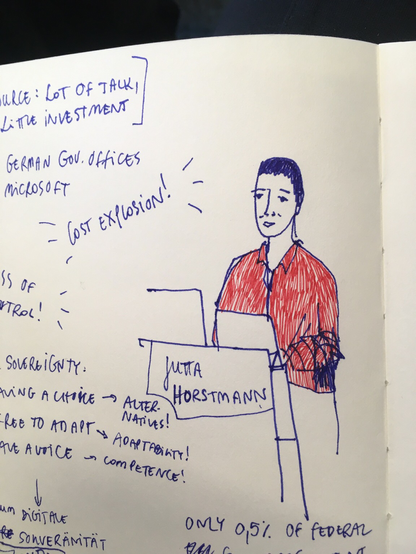 URCE: LOT OF TALK,
LITTLE INVESTMENT
GERMAN GOV. OFFICES
MICROSOFT
COST EXPLOSION!
SS OF
TROL!
SOVEREIGNTY:
AVING A CHOICE → ALTER-
NATIVES!
FREE TO ADAPT → ADAPTABILITY!
AVE A VOICE → COMPETENCE!
JUTTA
HORSTMANN
UM DIGITALE
SOUVERÄNITÄT
ONLY 0,5% OF FEDERAL